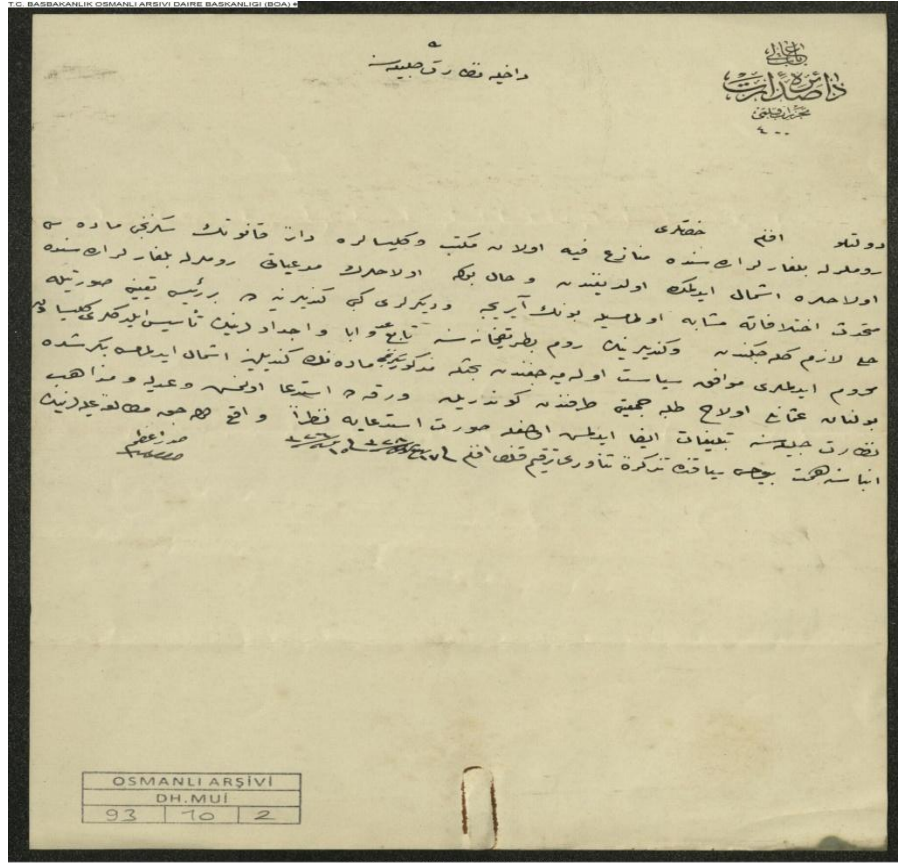 T.C. BAŞBAKANLIK OSMANLI ARŞİVİ DAİRE BAŞKANLIĞI (BOA)
باب عالی
دائرهٔ صدارت
٤٠٠
داخلیه نظارت جلیله سنه
دولتلو افندم حضرتلری
روملرله بلغارلر اراسنده منازع فیه اولان مکتب و کلیسالره دائر قانونک سکزنجی ماده سی
اولاحلره اشتمال ایتمدیکندن و حال بوکه اولاحلرک مدعیاتی روملرله بلغارلر اراسنده
اختلافاته مشابه اولمسیله بونک آیریجه و دیکرلری کبی کندیلرینه ده بر رئیس تعیینی صورتیله
حلی لازم کله جکندن و کندیلرینک روم بطریقخانه سنه تابع و ابا و اجدادلرینک تأسیس ایلدکلری کلیسالردن
محروم ایدلملری موافق سیاست اوله میه جغندن بحثله مذکور ماده نک کندیلرینه اشتمال ایدلمسی
بولنان عثمانلی اولاح طلبه جمعیتی طرفندن کوندریلن ورقه ده استدعا اولنمش و عدلیه و مذاهب
نظارت جلیله سنه تبلیغات ایفا ایدلمش اولمغله صورت استدعایه نظراً
انباسنه همت بیورلمسی سیاقنده تذکرهٔ ثناوری ترقیم قلندی افندم
صدر اعظم
OSMANLI ARŞİVİ
DH.MUİ
93 10 2